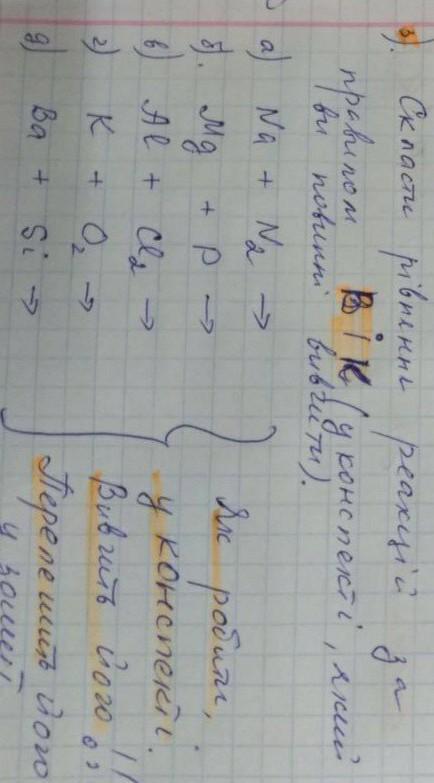 3). Скласти рівняння реакцій за
правилом В і К (у конспекті, який
ви повинні вивчити).
а) Na + N₂ →
б). Mg + P →
в) Al + Cl₂ →
г) K + O₂ →
д) Ba + Si →
Як робити,
у конспекті.
Вивчить його!!
Перепешить його
у зошит